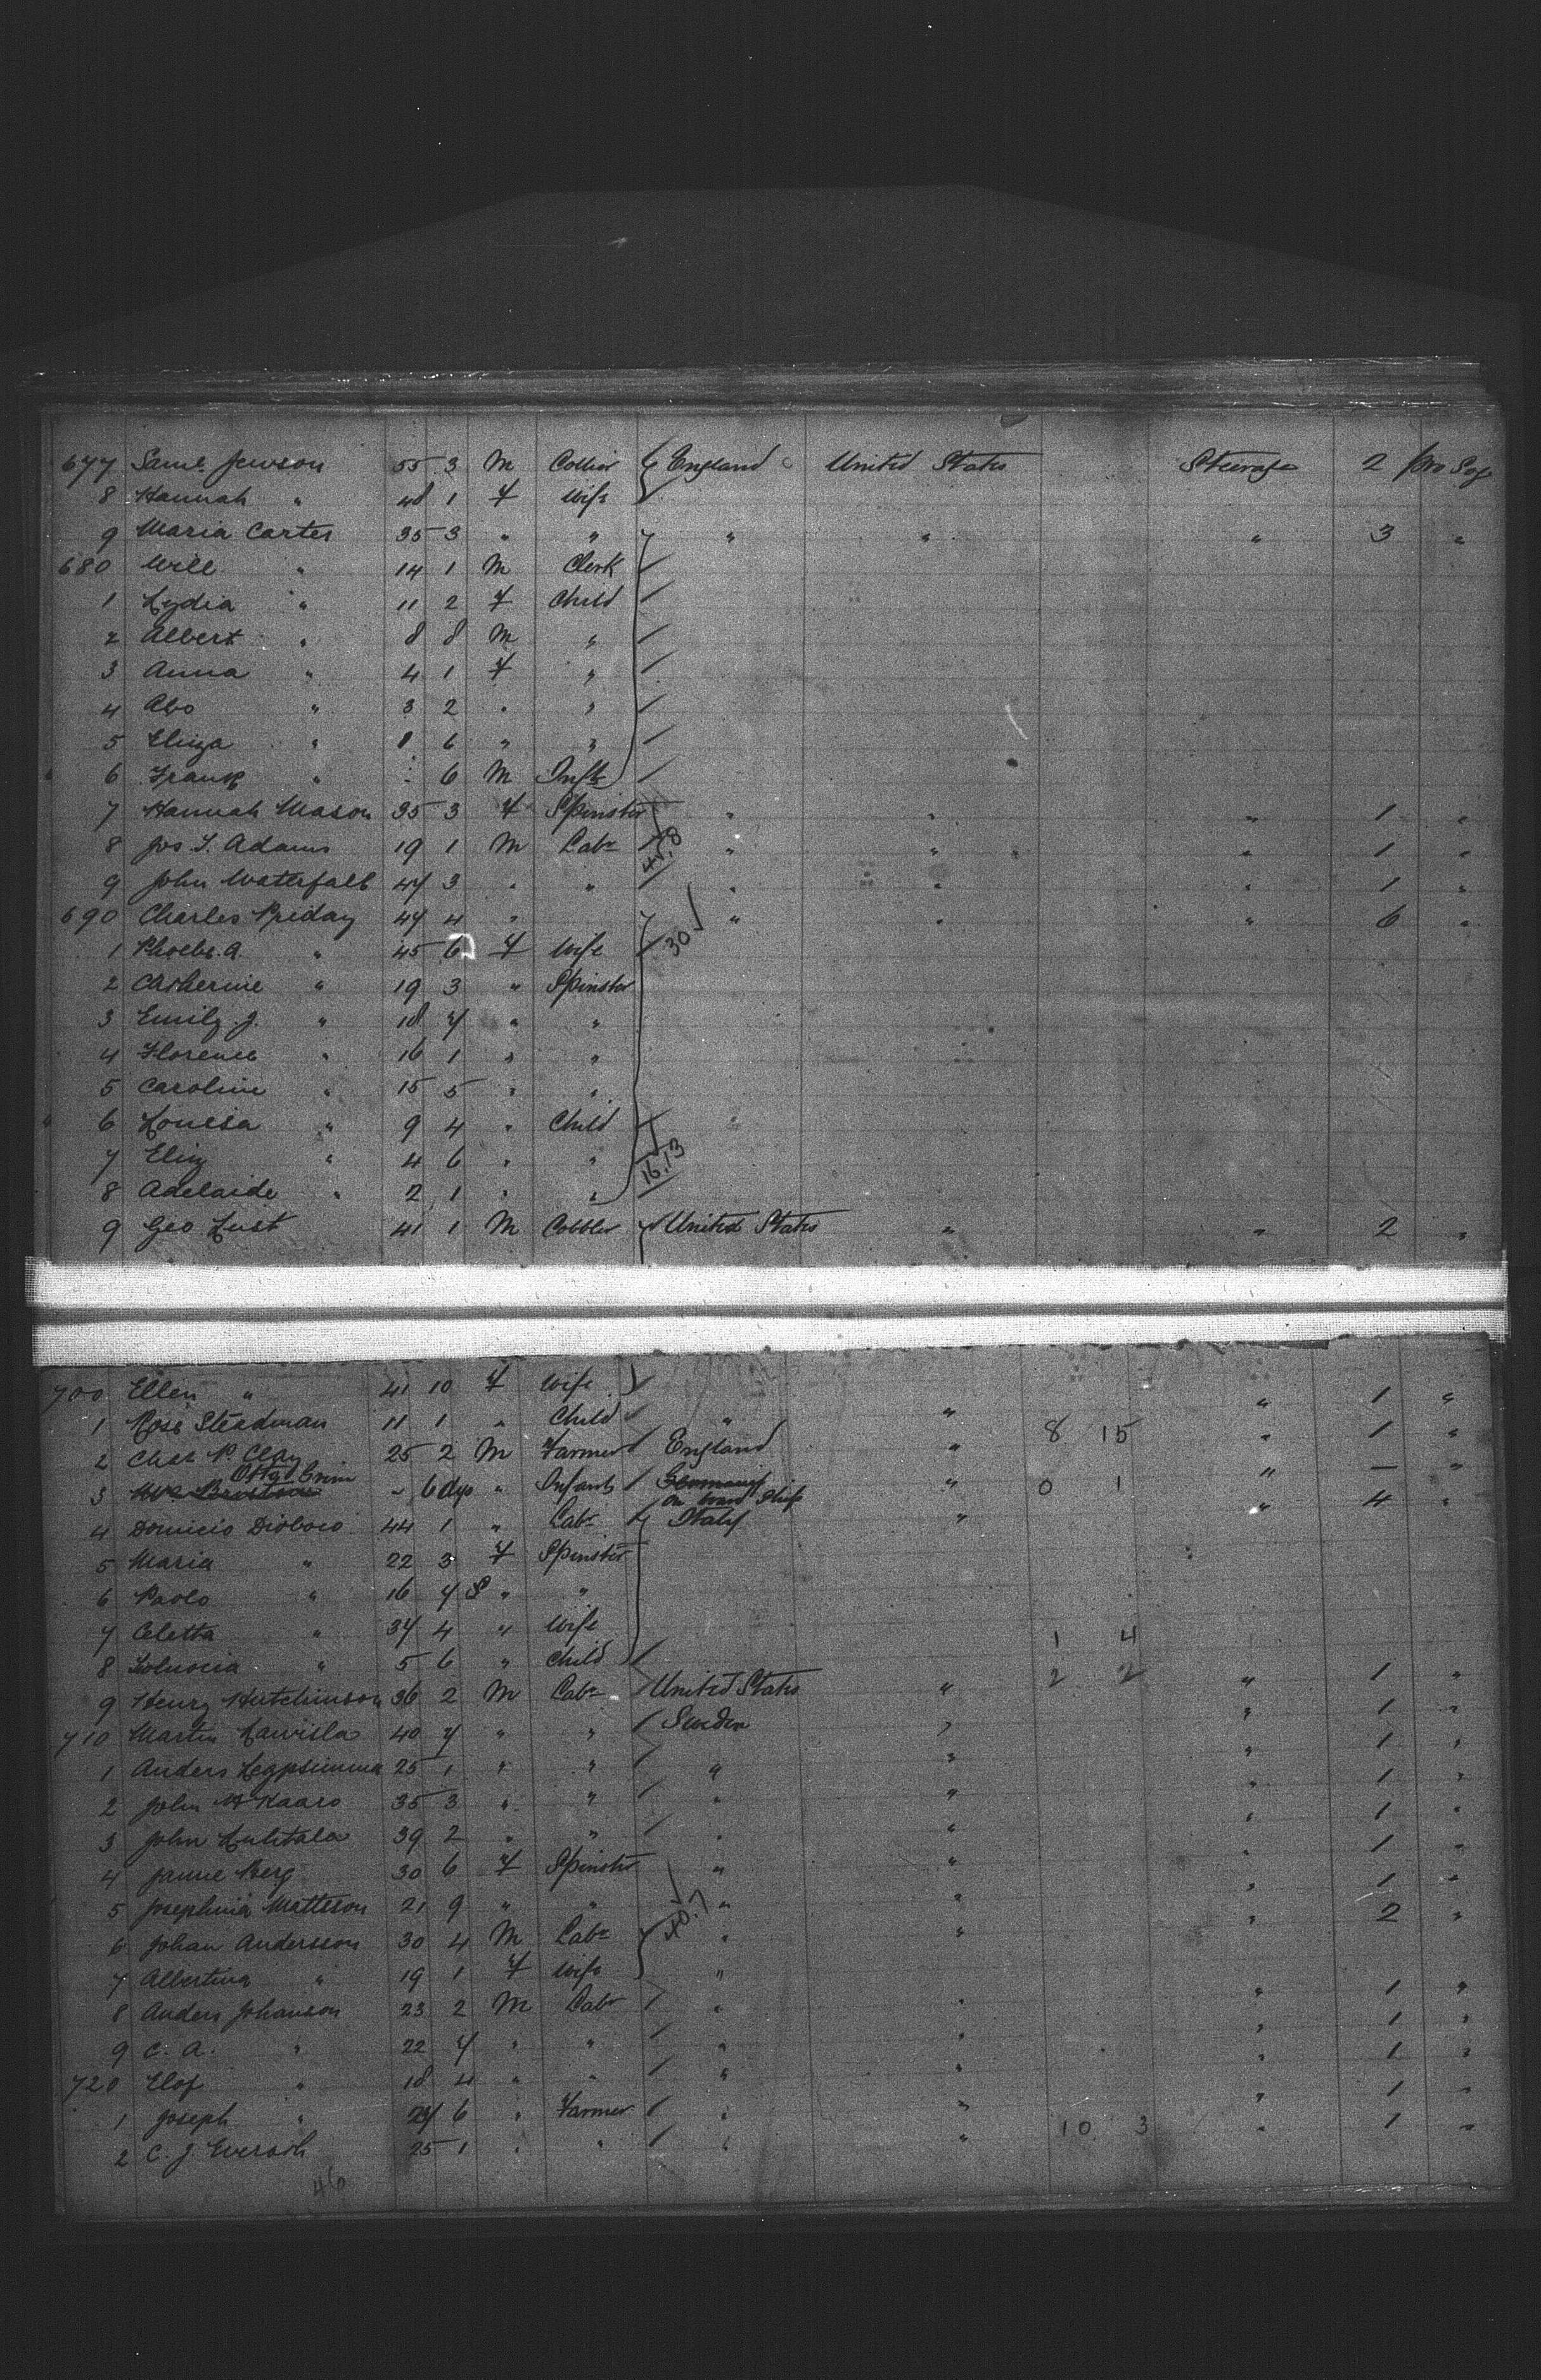 677 Saml Jewson 55 3 M Collier England United States Steerage 2 Pro Soj
8 Hannah " 48 1 F Wife
9 Maria Carter 35 3 " " " " " 3 "
680 Will " 14 1 M Clerk
1 Lydia " 11 2 F Child
2 Albert " 8 8 M "
3 Anna " 4 1 F "
4 Abo " 3 2 " "
5 Eliza " 1 6 " "
6 Frank " - 6 M Inft
7 Hannah Mason 35 3 F Spinster " " " 1 "
8 Jos. T. Adams 19 1 M Labr 41,8 " " " 1 "
9 John Waterfall 47 3 " " " " " 1 "
690 Charles Priday 47 4 " " " " 6 "
1 Phoebe. A. " 45 6 F Wife 30
2 Catherine " 19 3 " Spinster
3 Emily. J. " 18 7 " "
4 Florence " 16 1 " "
5 Caroline " 15 5 " "
6 Louisa " 9 4 " Child "
7 Eliz " 4 6 " " 16,13
8 Adelaide " 2 1 " "
9 Geo Lust 41 1 M Cobbler United States " " 2 "
700 Ellen " 41 10 F Wife
1 Rose Steadman 11 1 " Child " " " 1 "
2 Chas P. Clay 25 2 M Farmer England " 8 15 " 1 "
3 - 6 dys " Infant Germany On board Ship " 0 1 " — "
4 Domicio Dioboio 44 1 " Labr Italy " " 4 "
5 Maria " 22 3 F Spinster
6 Paolo " 16 7 S " "
7 Celetta " 37 4 " Wife 1 4
8 " 5 6 " Child
9 Henry Hutchinson 36 2 M Labr United States " 2 2 " 1 "
710 Martin Lawisla 40 7 " " Sweden " " 1 "
1 Anders 25 1 " " " " " 1 "
2 John Kaaro 35 3 " " " " " 1 "
3 John Luhtala 39 2 " " " " " 1 "
4 Janne Berg 30 6 F Spinster " " " 1 "
5 Josephina Matteson 21 9 " " 40.7 " " " 1 "
6 Johan Andersson 30 4 M Labr " " " 2 "
7 Albertina " 19 1 F Wife "
8 Anders Johanson 23 2 M Labr " " " 1 "
9 C. A. " 22 7 " " " " " 1 "
720 Elof " 18 4 " " " " " 1 "
1 Joseph " 27 6 " Farmer " " " 1 "
2 C. J. 25 1 " " " " 10 3 " 1 "
46